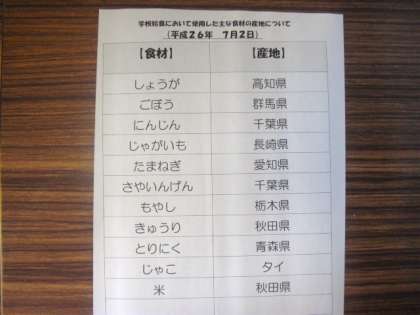 学校給食において使用した主な食材の産地について
(平成26年 7月2日)
【食材】 【産地】
しょうが 高知県
ごぼう 群馬県
にんじん 千葉県
じゃがいも 長崎県
たまねぎ 愛知県
さやいんげん 千葉県
もやし 栃木県
きゅうり 秋田県
とりにく 青森県
じゃこ タイ
米 秋田県